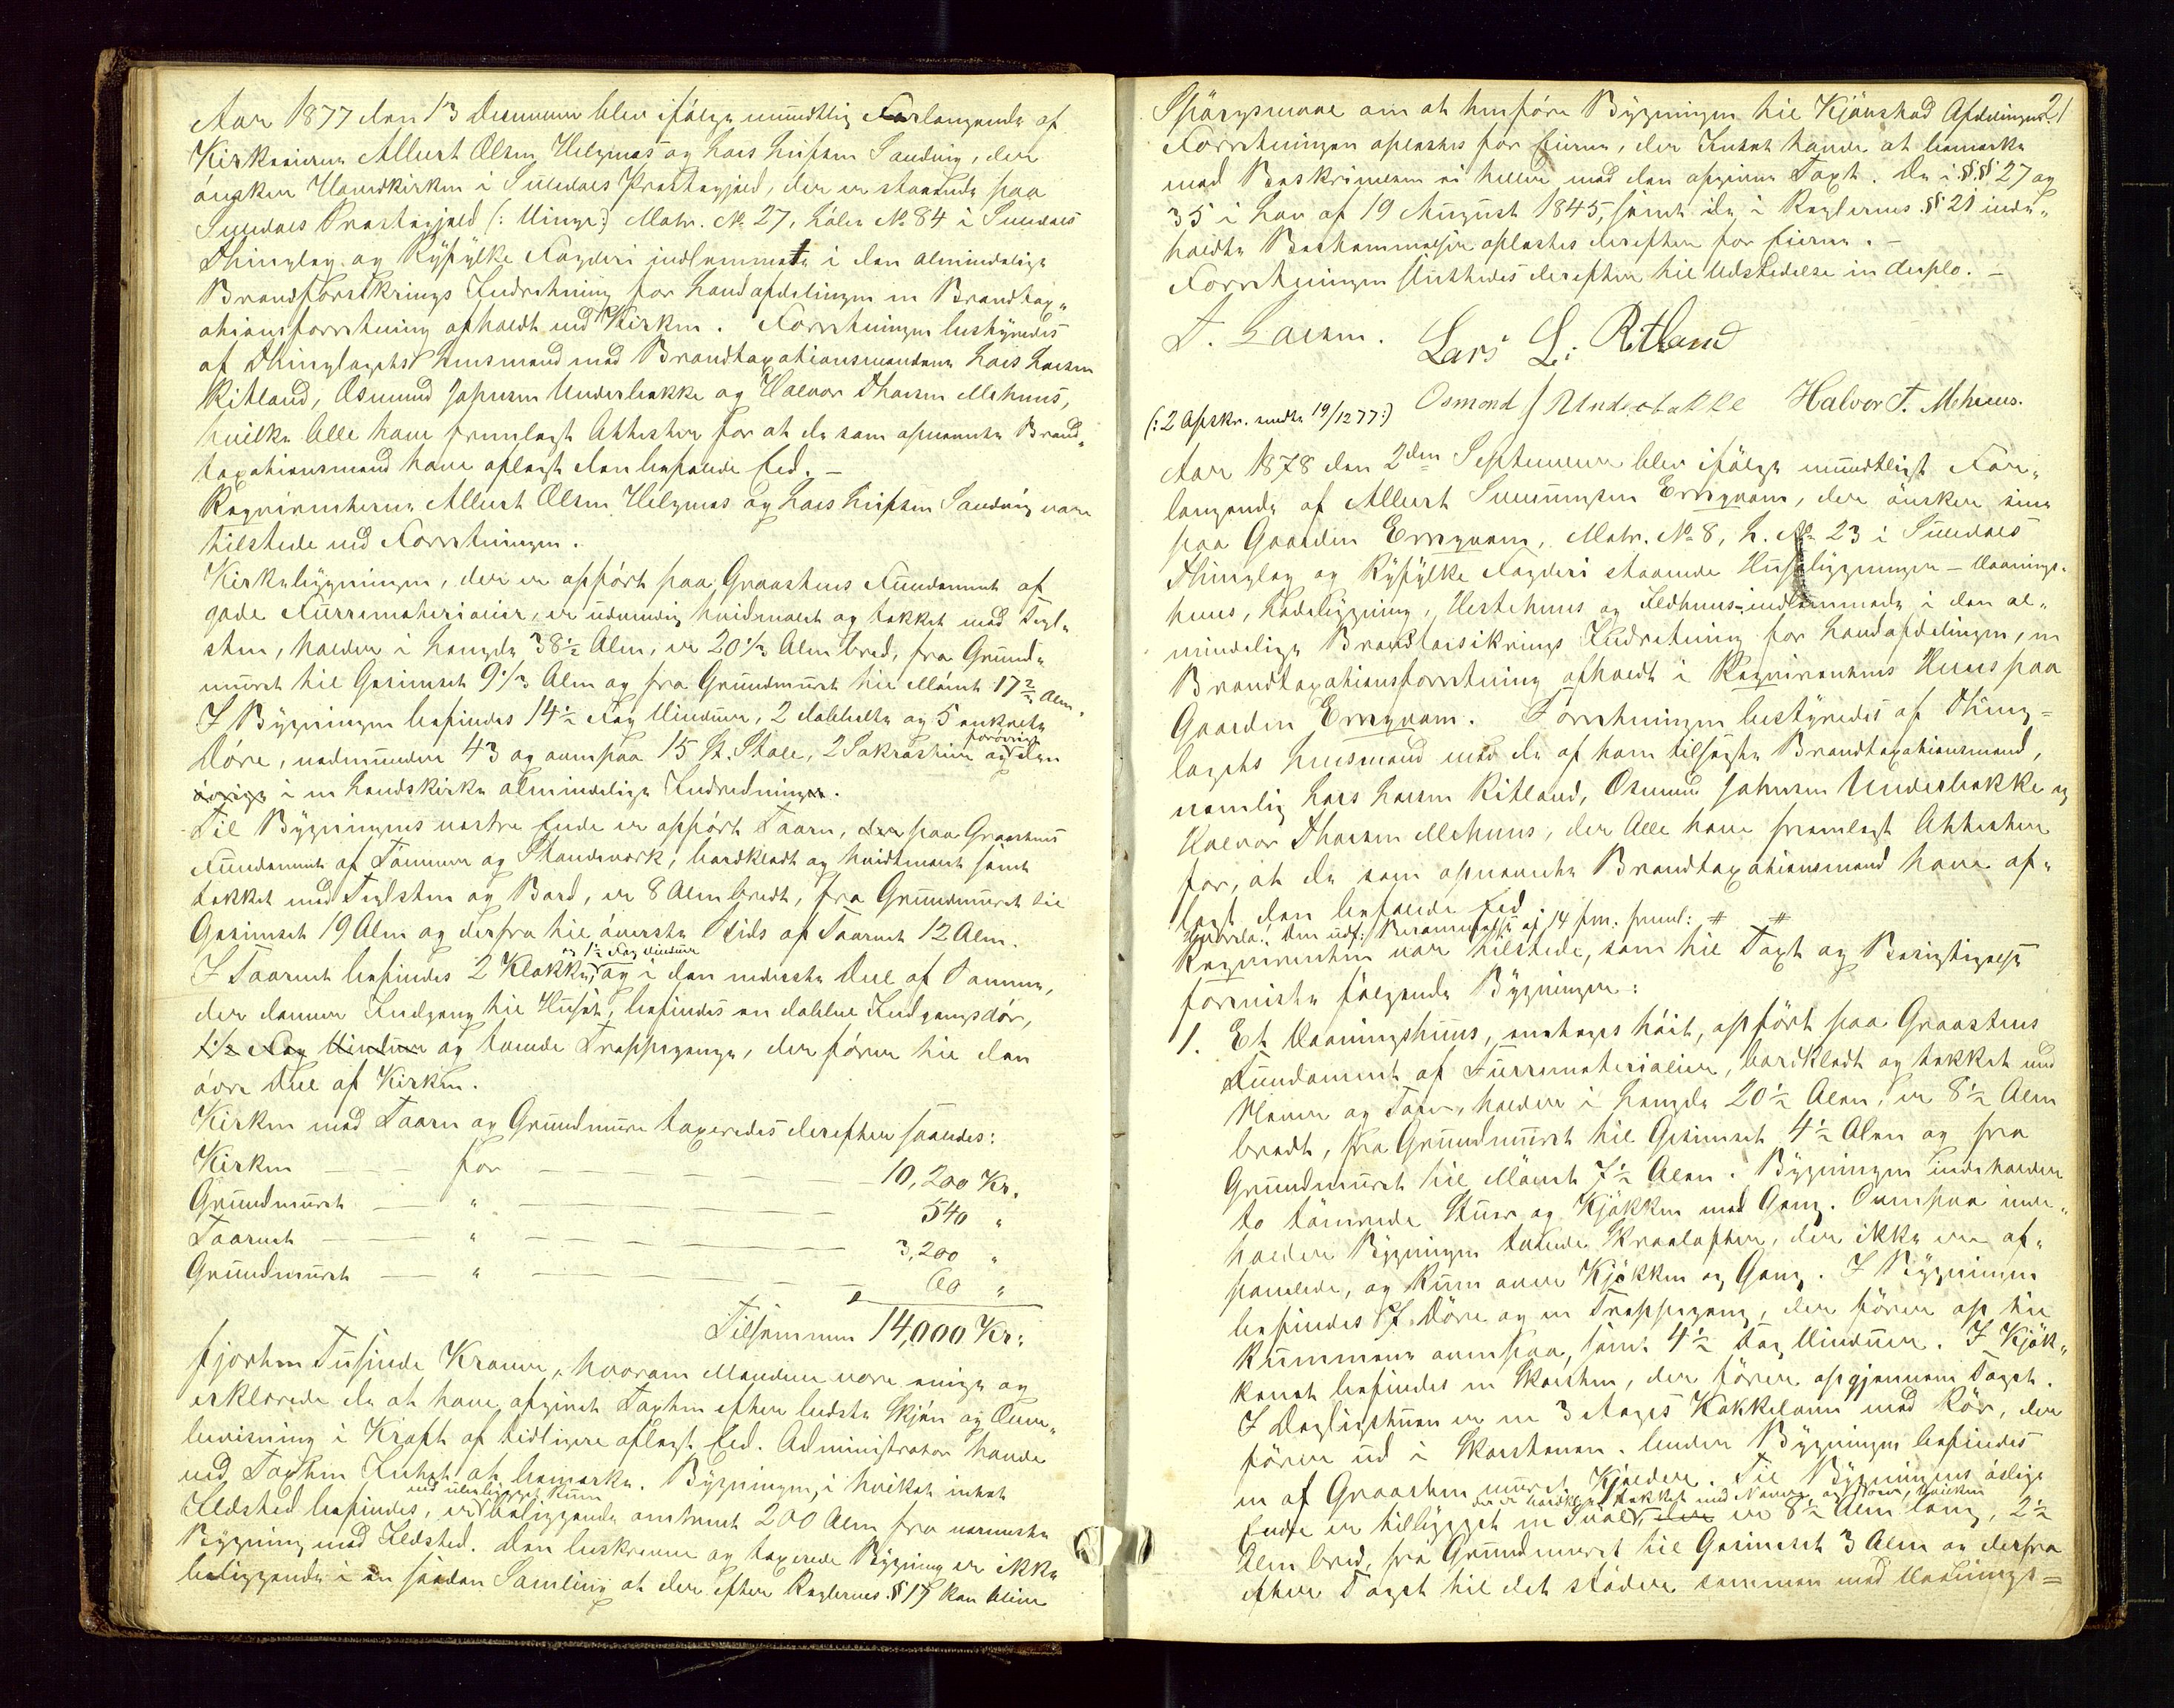 Aar 1877 den 13 December blev ifølge mundtlig Forlangende af
Kirkeeierne Albert Olsen Helgenæs og Lars Leifsen Sandvig, der
ønsker Hovedkirken i Suledals Præstegjeld, der er staaende paa
Suledals Præstegjeld (: Vinge:) Matr. No 27, Løbe No 84 i Suledals
Thinglag og Ryfylke Fogderi indlemmet i den almindelige
Brandforsikrings Indretning for Landafdelingen en Brandtax„
ationsforretning afholdt ved Kirken. Forretningen bestyredes
af Thinglagets Lensmand med Brandtaxationsmændene Lars Larsen
Ritland, Osmund Johnsen Underbakke og Halvor Thorsen Mehuus,
hvilke Alle have fremlagt Attester for at de som opnævnte Brand„
taxationsmænd have aflagt den befalede Eed. —
Reqvirenterne Albert Olsen Helgenæs og Lars Leifsen Sandvig vare
tilstede ved Forretningen.
Kirkebygningen, der er opført paa Graasteens Fundament af
gode Furrematerialier, er udvendig hvidmalet og tækket med Tegl„
sten, holder i Længde 38½ Alen, er 20⅓ Alen bred, fra Grund„
muret til Gesimset 9⅓ Alen og fra Grundmuret til Mønet 17½ Alen.
I Bygningen befindes 14½ Fag Vinduer, 2 dobbelte og 5 enkelte
Døre, nedenunder 43 og ovenpaa 15 St. Stole, 2 Sakrastier og forøvrigt den
øvrige i en Landskirke almindelige Indredning.
Til Bygningens vestre Ende er opført Taarn, der paa Graasteens
Fundament af Tømmer og Standværk, bordklædt og hvidtmalet samt
tækket med Teglsten og Bord, er 8 Alen bredt, fra Grundmuret til
Gesimset 19 Alen og derfra til øverste Kids af Taarnet 12 Alen.
I Taarnet befindes 2 Klokker, og 1½ Fag Vinduer og i den nederste Deel af Samme,
der danner Indgang til Huset, befindes en dobbel Indgangsdør,
1½ Fag Vinduer og tvende Trappegange, der fører til den
øvre Deel af Kirken.
Kirken med Taarn og Grundmure taxeredes derefter saaledes:
Kirken — — for — — — — 10,200 Kr.
Grundmuret — „ — — — — 540 „
Taarnet — — „ — — — — 3,200 „
Grundmuret — „ — — — — 60 „
Tilsammen 14,000 Kr:
fjorten Tusinde Kroner, hvorom Mændene vare enige og
erklærede de at have afgivet Taxten efter bedste Skjøn og Over„
bevisning i Kraft af tidligere aflagt Eed. Administrator havde
ved Taxten Intet at bemærke. Bygningen, i hvilket intet
Ildsted befindes, er ved ubebygget Rum beliggende omtrent 200 Alen fra nærmeste
Bygning med Ildsted. Den beskrevne og taxerede Bygning er ikke
beliggende i en saadan Samling at der efter Reglernes § 17 kan blive
21
Spørgsmaal om at henføre Bygningen til Kjøbstad Afdelingen.
Forretningen oplæstes for Eierne, der Intet havde at bemærke
mod Beskrivelsen ei heller mod den afgivne Taxt. De i §§ 27 og
35 i Lov af 19 August 1845, samt de i Reglernes § 21 inde„
holdte Bestemmelser oplæstes derefter for Eierne. —
Forretningen sluttedes derefter til Udstedelse in duplo. —
T. Larsen. Lars L: Ritland
(: 2 Afskr. sendte 19/12 77:) Osmond J Underbakke Halvor T. Mehuus.
Aar 1878 den 2den September blev ifølge mundtligt For„
langende af Albert Ererqvam, der ønsker sine
paa Gaarden Ererqvam, Matr. No 8, L. No 23 i Suledals
Thinglag og Ryfylke Fogderi staaende Huusbygninger – Vaanings-
huus, Ladebygning, Hestehuus og Ildhuus – indlemmede i den al„
mindelige Brandforsikrings Indretning for Landafdelingen, en
Brandtaxationsforretning afholdt i Reqvirentens Huus paa
Gaarden Ererqvam. Forretningen bestyredes af Thing=
lagets Lensmand med de af ham tilsagte Brandtaxationsmænd,
nemlig Lars Larsen Ritland, Osmund Johnsen Underbakke og
Halvor Thorsen Mehuus, der Alle have fremlagt Attester
for, at de som opnævnte Brandtaxationsmænd have af„
lagt den befalede Eed.
Reqvirenten var tilstede, som til Taxt og Besigtigelse
foreviste følgende Bygninger:
1. Et Vaaningshuus, enetages høit, opført paa Graasteens
Fundament af Furrematerialier, bordklædt og tækket med
Næver og Torv, holder i Længde 20½ Alen, er 8½ Alen
bredt, fra Grundmuret til Gesimset 4½ Alen og fra
Grundmuret til Mønet 7½ Alen. Bygningen indeholder
to tømrede Stuer og Kjøkken med Gang. Ovenpaa inde„
holder Bygningen tvende Skraalofter, der ikke ere af„
panelede, og Rum over Kjøkken og Gang. I Bygningen
befindes 7 Døre og en Trappegang, der fører op til
Rummene ovenpaa, samt 4½ Fag Vinduer. I Kjøk„
kenet befindes en Skorsten, der fører op gjennem Taget.
I Dagligstuen er en 3 Etages Kakkelovn med Rør, der
fører ud i Skorstenen. Under Bygningen befindes
en af Graasten muret Kjælder. Til Bygningens østlige
Ende er tilbygget en Sval, der er bordklædt, tækket med Næver og Torv, hvilken er 8½ Alen lang, 2½
Alen bred, fra Grundmuret til Gesimset 3 Alen og derfra
efter Taget til det støder sammen med Vaanings=